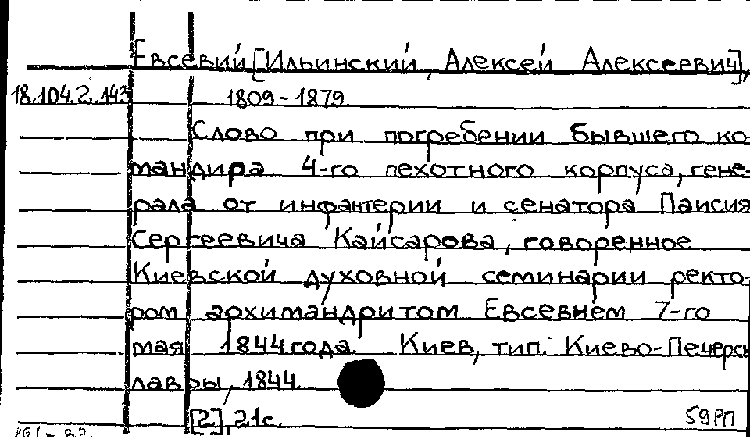 Евсевий [Ильинский, Алексей Алексеевич],
18.104.2.143
1809-1879
Слово при погребении бывшего ко-
мандира 4-го пехотного корпуса, гене-
рала от инфантерии и сенатора Паисия
Сергеевича Кайсарова, говоренное
Киевской духовной семинарии ректо-
ром архимандритом Евсевием 7-го
мая 1844 года. Киев, тип. Киево-Печерс
лавры, 1844.
[2], 21с. 59РП